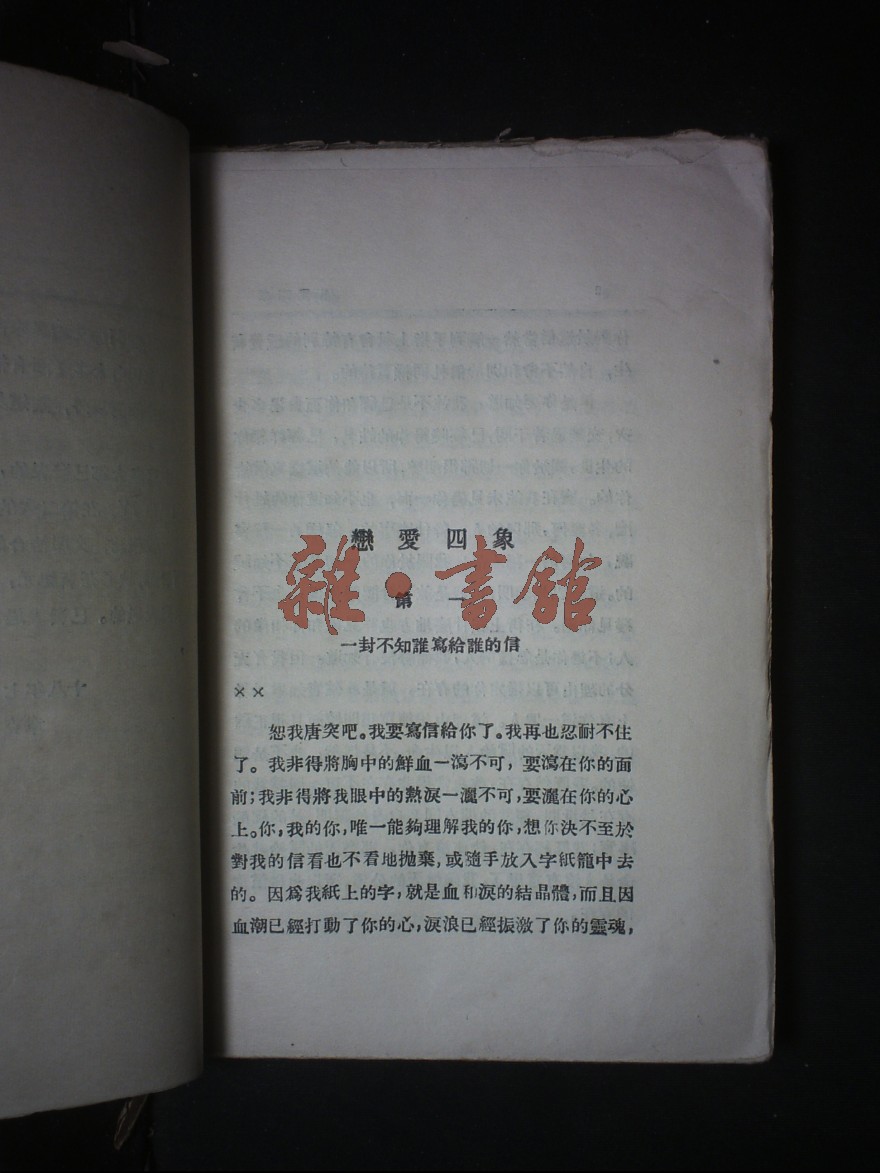 戀愛四象
雜·書館
第一
一封不知誰寫給誰的信
××
恕我唐突吧。我要寫信給你了。我再也忍耐不住
了。我非得將胸中的鮮血一瀉不可，要瀉在你的面
前；我非得將我眼中的熱淚一灑不可，要灑在你的心
上。你，我的你，唯一能夠理解我的你，想你決不至於
對我的信看也不看地拋棄，或隨手放入字紙籠中去
的。因爲我紙上的字，就是血和淚的結晶體，而且因
血潮已經打動了你的心，淚浪已經振激了你的靈魂，